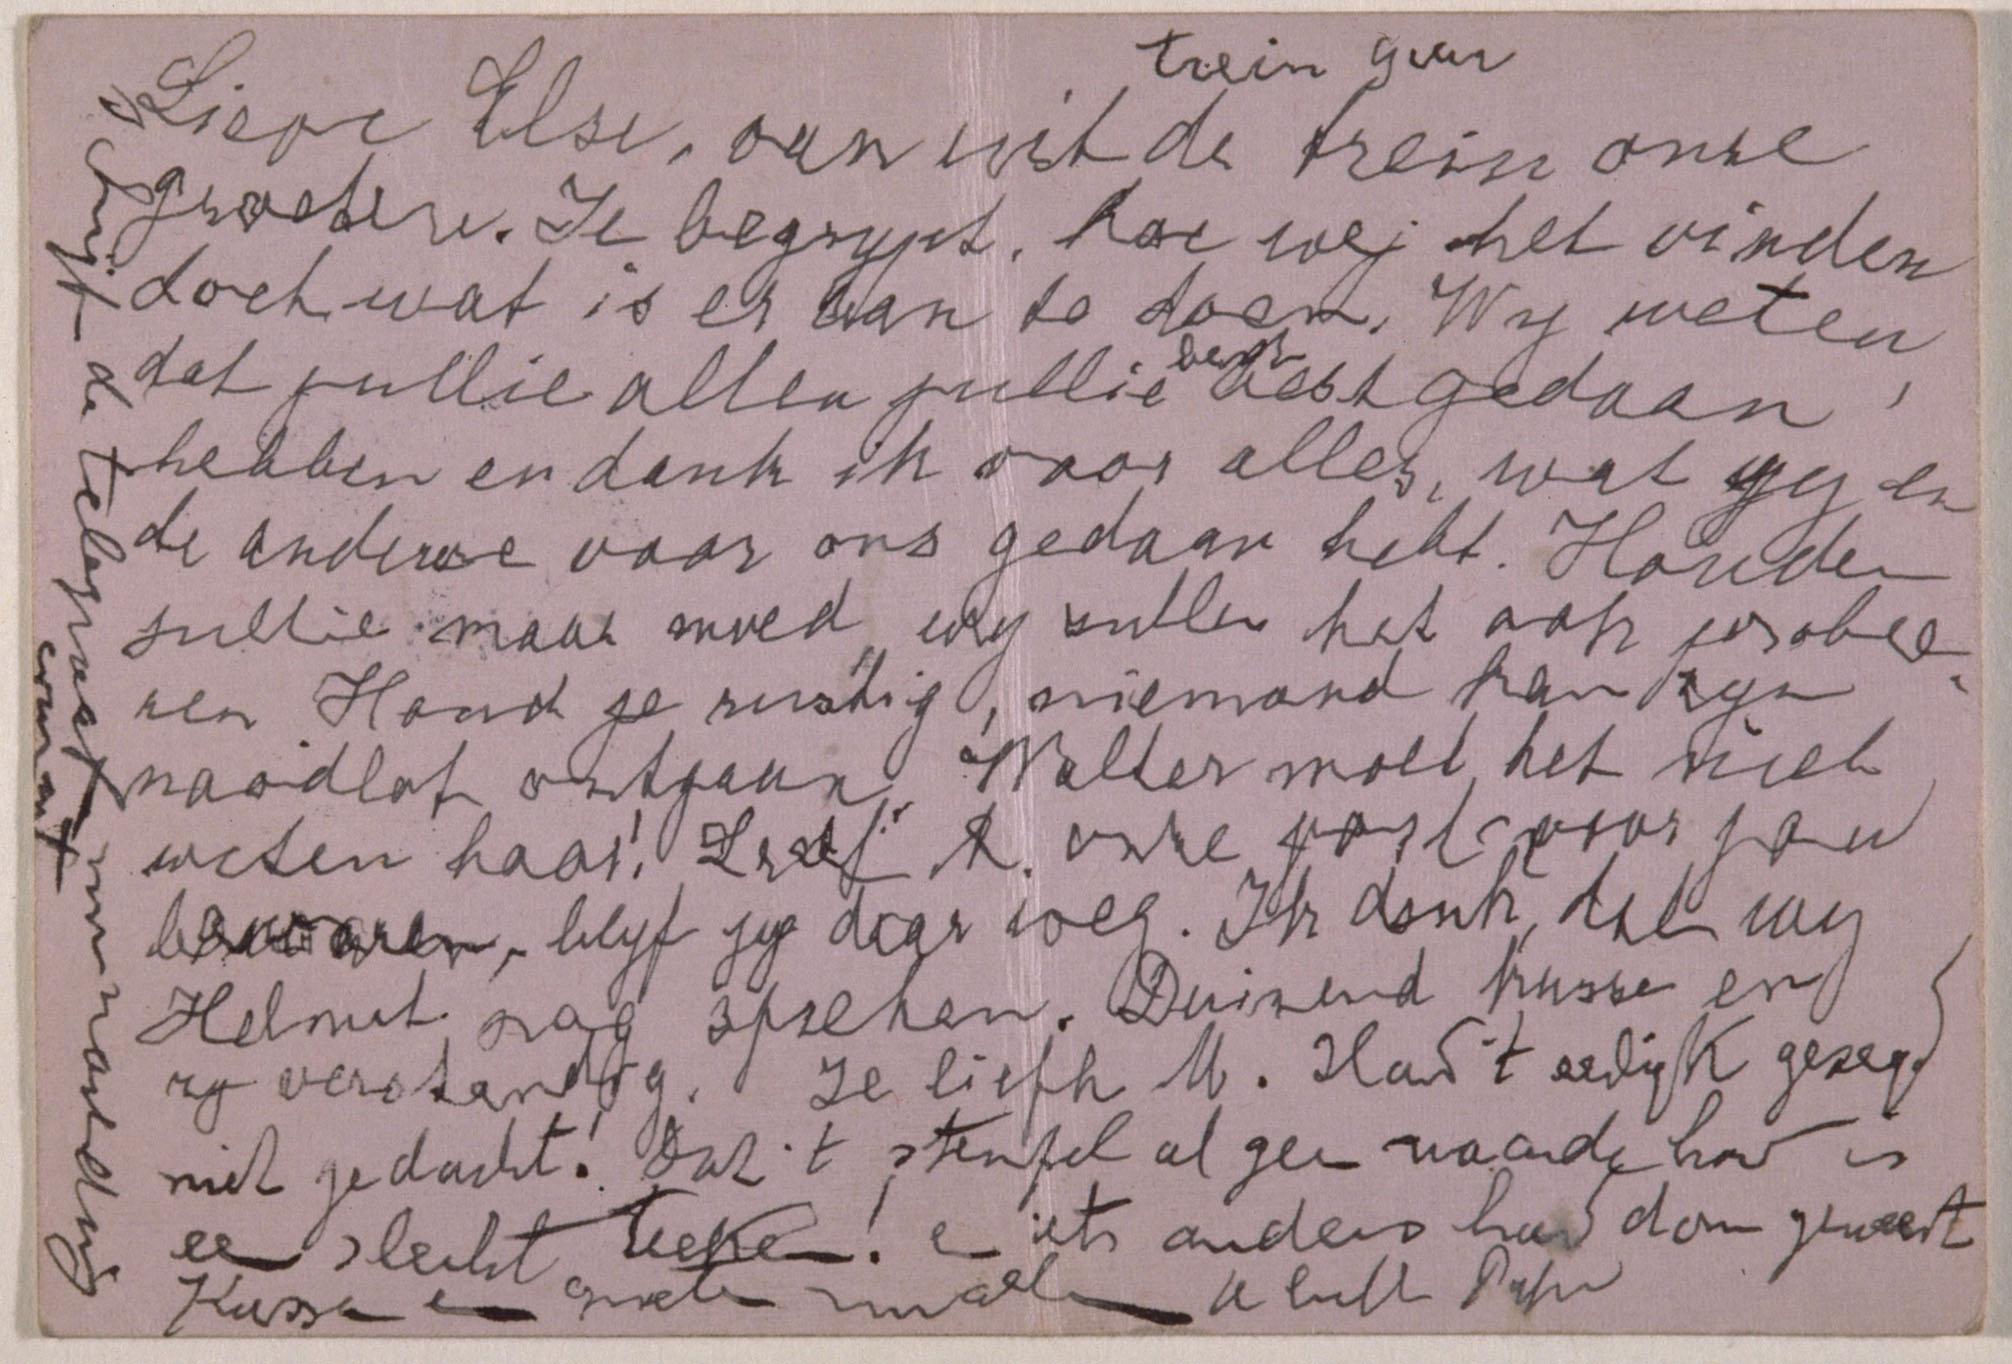 trein
Lieve Else, van uit de trein onze
groeten. Je begrypt, hoe wej het vinden
doch wat is er aan te doen. Wy weten,
dat jullie allen jullie best best gedaan
hebben en dank ik voor alles, wat gy en
de andere voor ons gedaan hebt. Houden
jullie maar moed, wy zullen het ook probee-
ren Houd je rustig, niemand kan zyn
noodlot ontgaan. Walter moet het niet
weten hoor! onze post voor jou
bewaren, blyf jy daar weg. Ik denk, dat wy
Helmut nog spreken. Duizend kusse en
zy verstandig. Je liefh M. Had 't eerlijk gezegd
niet gedacht! Dat 't stempel al geen waarde had is
een slecht teeken! en iets anders had dom geweest
Kussen en groeten Papa
Schrijf de telegraaf
courant